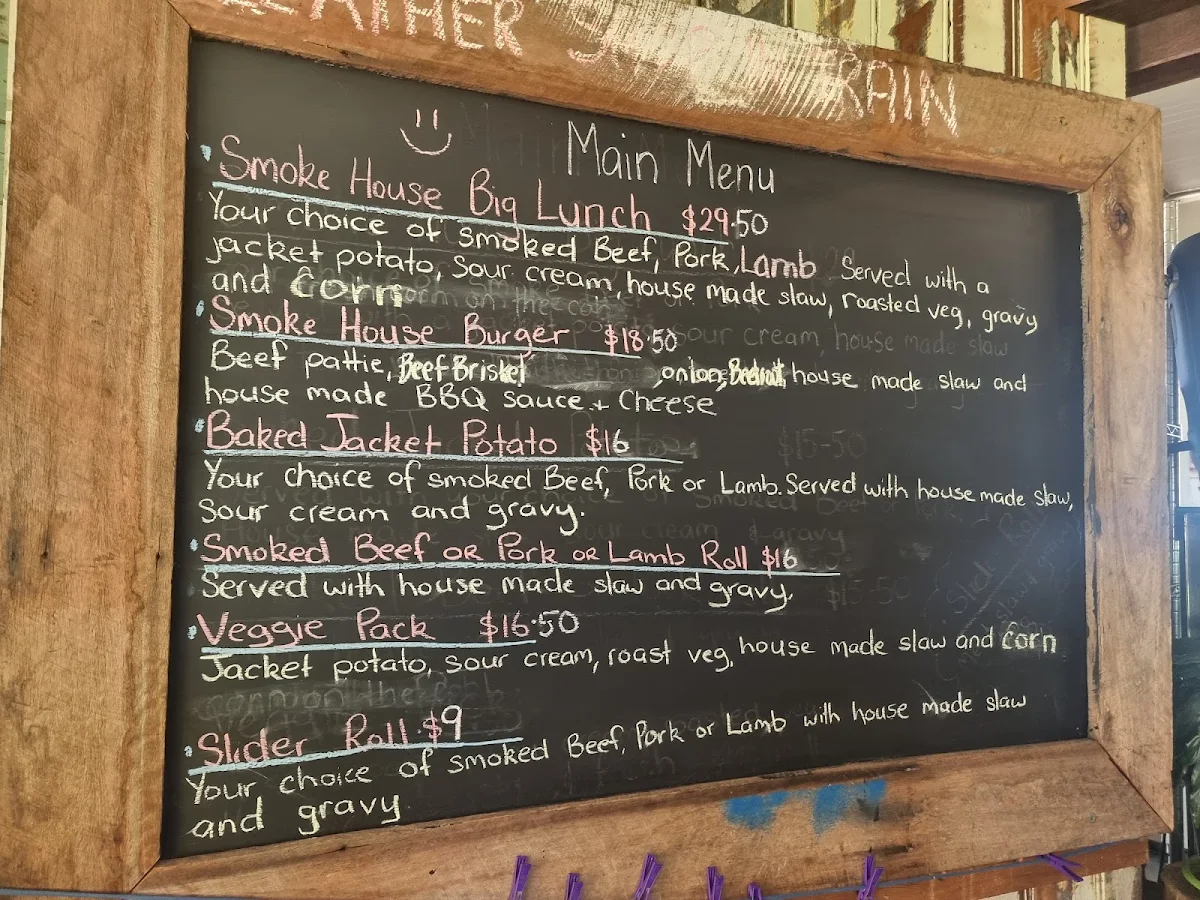 WEATHER RAIN
Main Menu
Smoke House Big Lunch $29.50
Your choice of smoked Beef, Pork, Lamb Served with a
jacket potato, sour cream, house made slaw, roasted veg, gravy
and Corn
Smoke House Burger $18.50
Beef pattie, Beef Brisket, onion, Beetroot, house made slaw and
house made BBQ sauce + Cheese
Baked Jacket Potato $16
Your choice of smoked Beef, Pork or Lamb. Served with house made slaw,
Sour cream and gravy.
Smoked Beef or Pork or Lamb Roll $16
Served with house made slaw and gravy.
Veggie Pack $16.50
Jacket potato, sour cream, roast veg, house made slaw and corn
Slider Roll $9
Your choice of smoked Beef, Pork or Lamb with house made slaw
and gravy